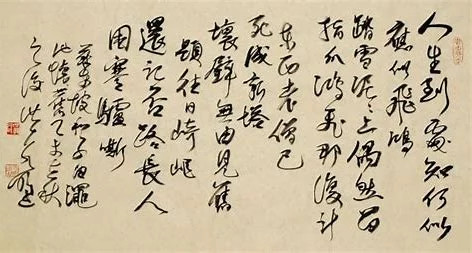 人生到處知何似
應似飛鴻
踏雪泥々上偶然留
指爪鴻飛那復計
東西老僧已
死成新塔
壞壁無由見舊
題往日崎嶇
還記否路長人
困蹇驢嘶
蘇東坡和子由澠
池懷舊